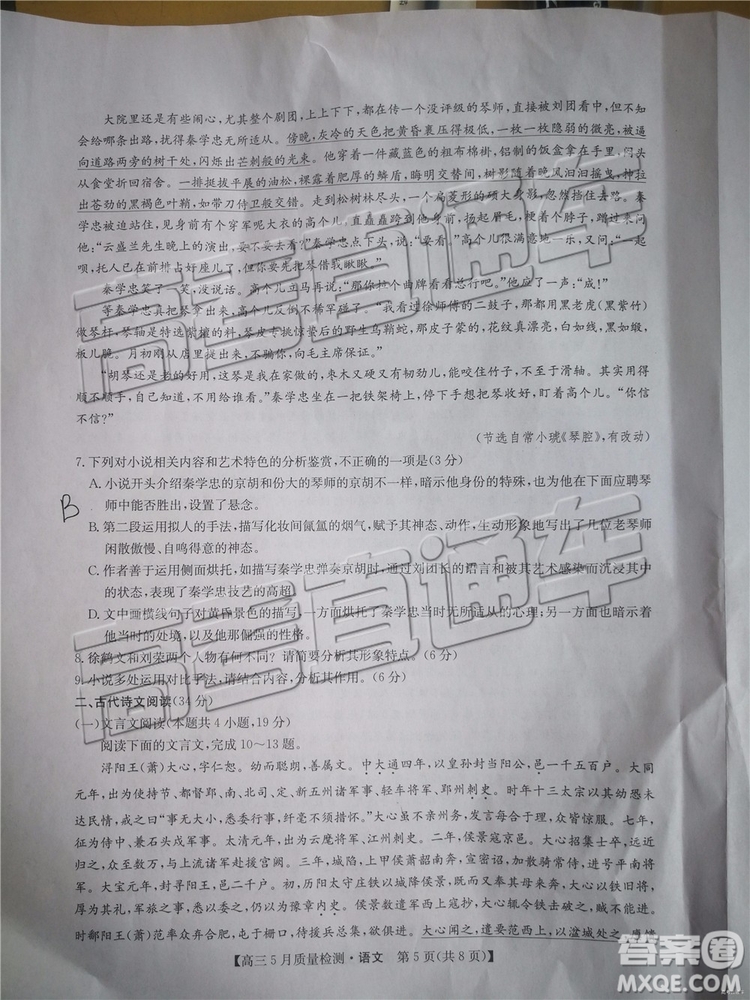 大院里还是有些闹心，尤其整个剧团，上上下下，都在传一个没评级的琴师，竟被刘团长指定给
会给哪条出路，扰得秦学忠无所适从。傍晚，灰冷的天色把黄昏裹压得极低，一枚一枚隐弱的微亮，被逼
向道路两旁的树干处，闪烁出芒刺般的光束。他穿着一件藏蓝色的粗布棉褂，铝制的饭盒拿在手里，闷头
从食堂折回宿舍。一排挺拔平展的油松，裸露着肥厚的鳞盾，晦明交替间，树影随着晚风汩汩摇曳，抻拉
出苍劲的黑褐色叶鞘，如带刀侍卫般交错。走到松树林尽头，一个扁菱形的硕大身影，忽然挡住去路。秦
学忠被迫站住，见身前有个穿军呢大衣的高个儿，直矗矗跨到他身前，扬起眉毛，梗着个脖子，歪过头问
他：“云盛兰先生晚上的演出，要不要去看？”秦学忠点下头，说：“要看。”高个儿很满意，又问：“一起
呗，托人已在前台占好座儿了，但你得把琴借我瞅瞅。”
秦学忠笑了一笑，没说话。高个儿立马再说：“那你拉个曲牌看看悉听尊便。”他应了一声：“成！”
等秦学忠把琴拿出来，高个儿反倒不稀罕碰了。“我看过徐师傅的二鼓子，用的是黑老虎（黑紫竹）
做琴杆，琴轴是特选紫檀的料，琴皮专挑惊蛰后的野生乌鞘蛇，那皮子蒙的，花纹真漂亮，白如线，黑如缎，
板儿脆。月初刚从云南运来，这个是要送给云盛兰的，向毛主席保证。”
“胡琴还是老的好用，这琴是我在家做的，枣木又硬又有韧劲儿，能咬住竹子，不至于滑轴。其实用得
顺不顺手，才最重要，再名贵的琴，拉不好也不能用，给谁看呢。”秦学忠坐在一把铁架椅上，停下又说：“你信
不信？”
（节选自常小琥《琴腔》，有改动）
7. 下列对小说相关内容和艺术特色的分析鉴赏，不正确的一项是（3 分）
A. 小说开头介绍秦学忠的京胡和份大的琴师的京胡不一样，暗示他身份的特殊，也为他应聘琴
师中能否胜出，设置了悬念。
B
B. 第二段运用拟人的手法，描写化妆间氤氲的烟气，赋予其神态、动作，生动形象地写出了几位老琴师
闲散傲慢、自鸣得意的神态。
C. 作者善于运用侧面烘托，如描写秦学忠弹奏京胡时，通过刘团长的语言和被其艺术感染而沉浸其中
的状态，表现了秦学忠技艺的高超。
D. 文中画横线句子对黄昏景色的描写，一方面烘托了秦学忠当时无所适从的心理；另一方面暗示着
他当时的处境，以及他那倔强的性格。
8. 徐鹤文和刘荣两个人物有何不同？请简要分析其形象特点。（6 分）
9. 小说多处运用对比手法，请结合内容，分析其作用。（6 分）
二、古代诗文阅读（34 分）
（一）文言文阅读（本题共 4 小题，19 分）
阅读下面的文言文，完成 10～13 题。
浔阳王（萧）大心，字仁恕。幼而聪朗，善属文。中大通四年，以皇孙封当阳公，邑一千五百户。大同
元年，出为使持节、都督郢、南、北司、定、新五州诸军事、轻车将军、郢州刺史。时年十三，太宗以其幼，恐未
达民情，戒之曰“事无大小，悉委行事，纤毫不须措怀。”大心虽不亲州务，发言每合于理，众皆惊服。七年，
征为侍中、兼石头戍军事。太清元年，出为云麾将军、江州刺史。二年，侯景寇京邑，大心招集士卒，远近
归之，众至数万，与上流诸军赴援宫阙。三年，城陷，上甲侯萧韶南奔，宣密诏，加散骑常侍，进号平南将
军。大宝元年，封寻阳王，邑二千户。初，历阳太守庄铁以城降侯景，既而又奉其母来奔，大心以铁旧将，
厚为其礼，军旅之事，悉以委之，仍以为豫章内史。侯景数遣军西上寇抄，大心辄令铁击破之，贼不能进。
时鄱阳王（萧）范率众弃合肥，屯于栅口，待援兵总集，欲俱进。大心闻之，遣要范西上，以湓城处之，廪馈
【高三 5 月质量检测·语文　第 5 页（共 8 页）】
高考直通车
高考直通车
答案圈
MXQE.COM